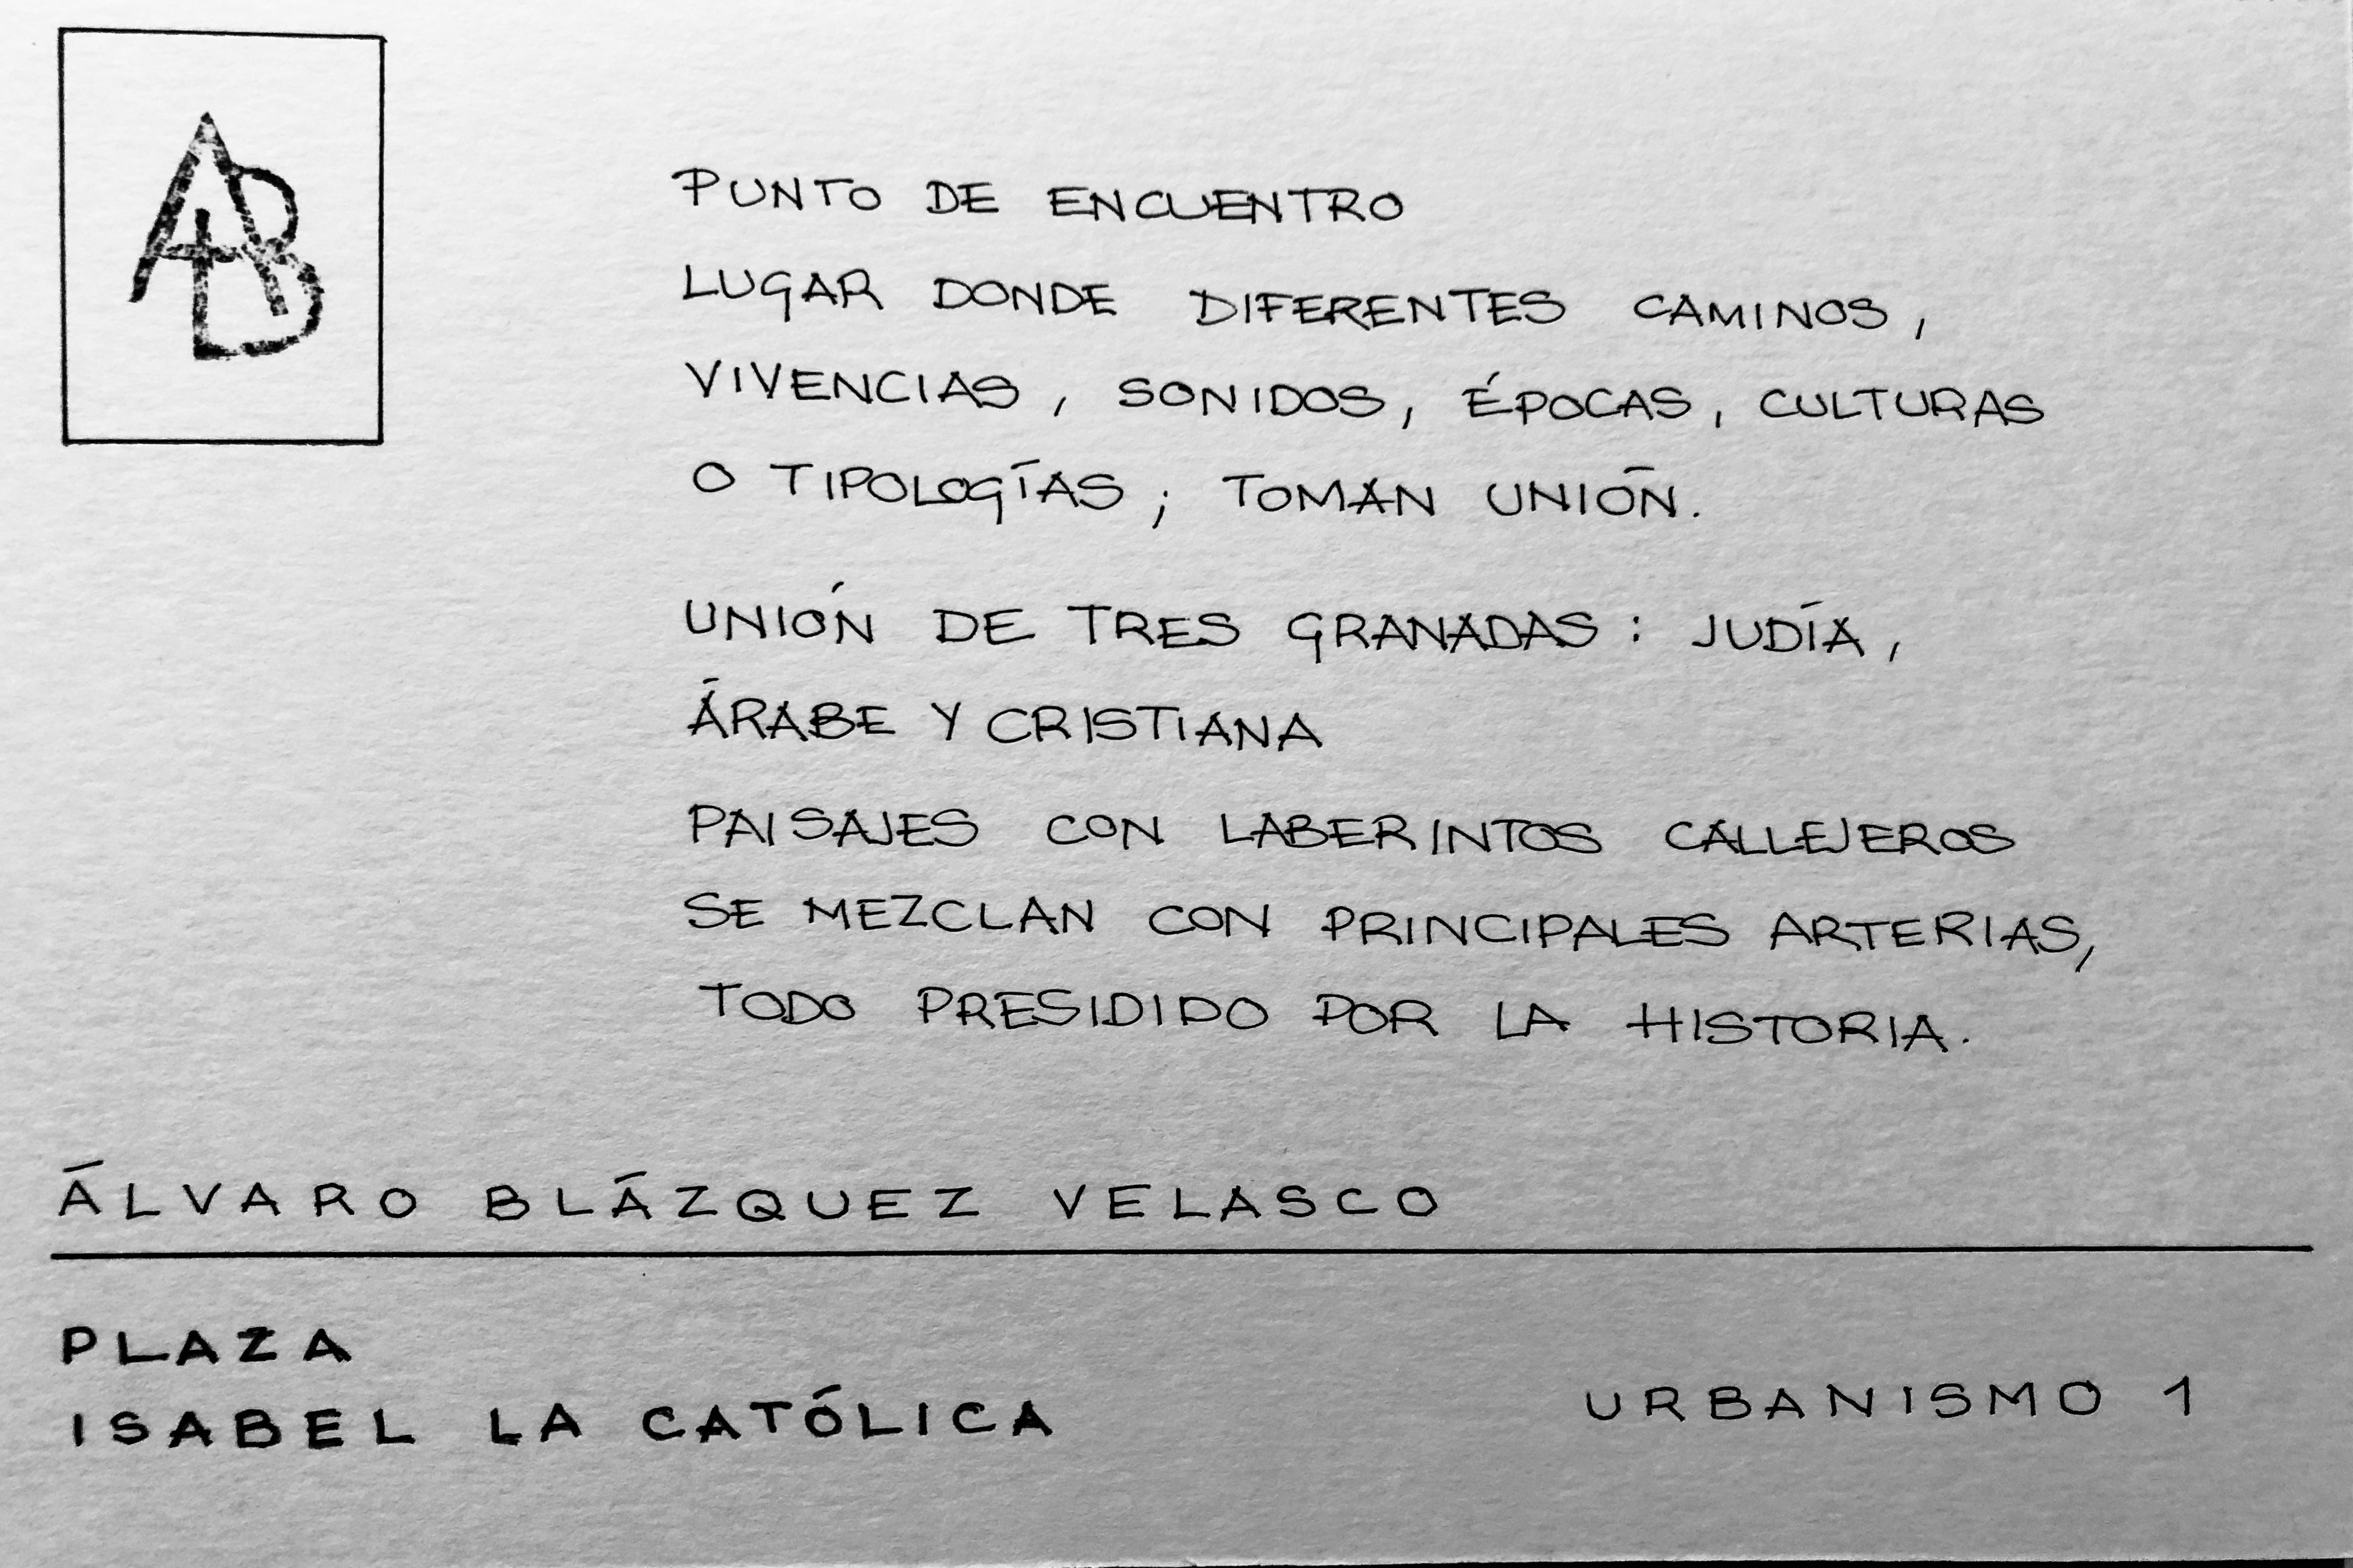 PUNTO DE ENCUENTRO
LUGAR DONDE DIFERENTES CAMINOS,
VIVENCIAS, SONIDOS, ÉPOCAS, CULTURAS
O TIPOLOGÍAS; TOMAN UNIÓN.
UNIÓN DE TRES GRANADAS: JUDÍA,
ÁRABE Y CRISTIANA
PAISAJES CON LABERINTOS CALLEJEROS
SE MEZCLAN CON PRINCIPALES ARTERIAS,
TODO PRESIDIDO POR LA HISTORIA.
ÁLVARO BLÁZQUEZ VELASCO
PLAZA
ISABEL LA CATÓLICA
URBANISMO 1